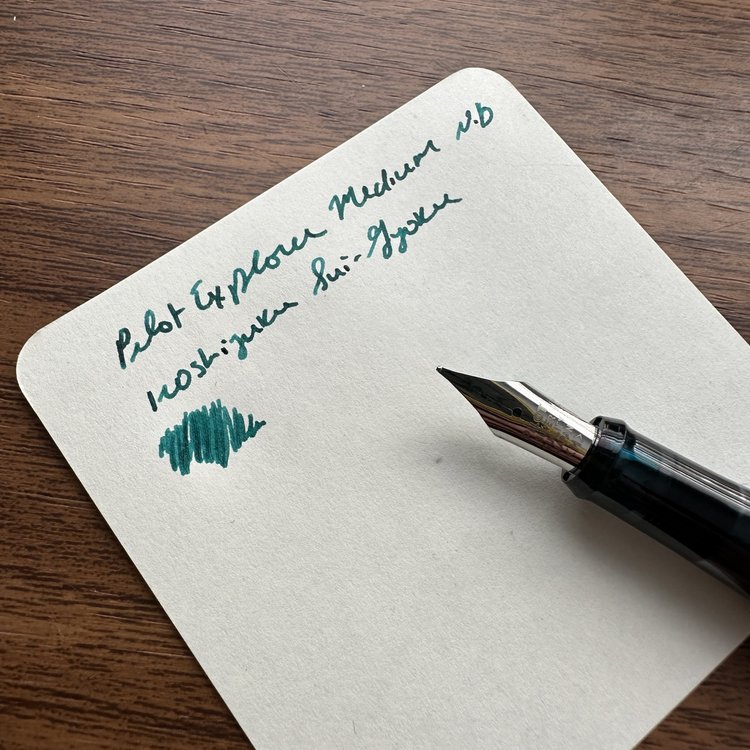 Pilot Explorer Medium nib
Iroshizuku Sui-Gyoku